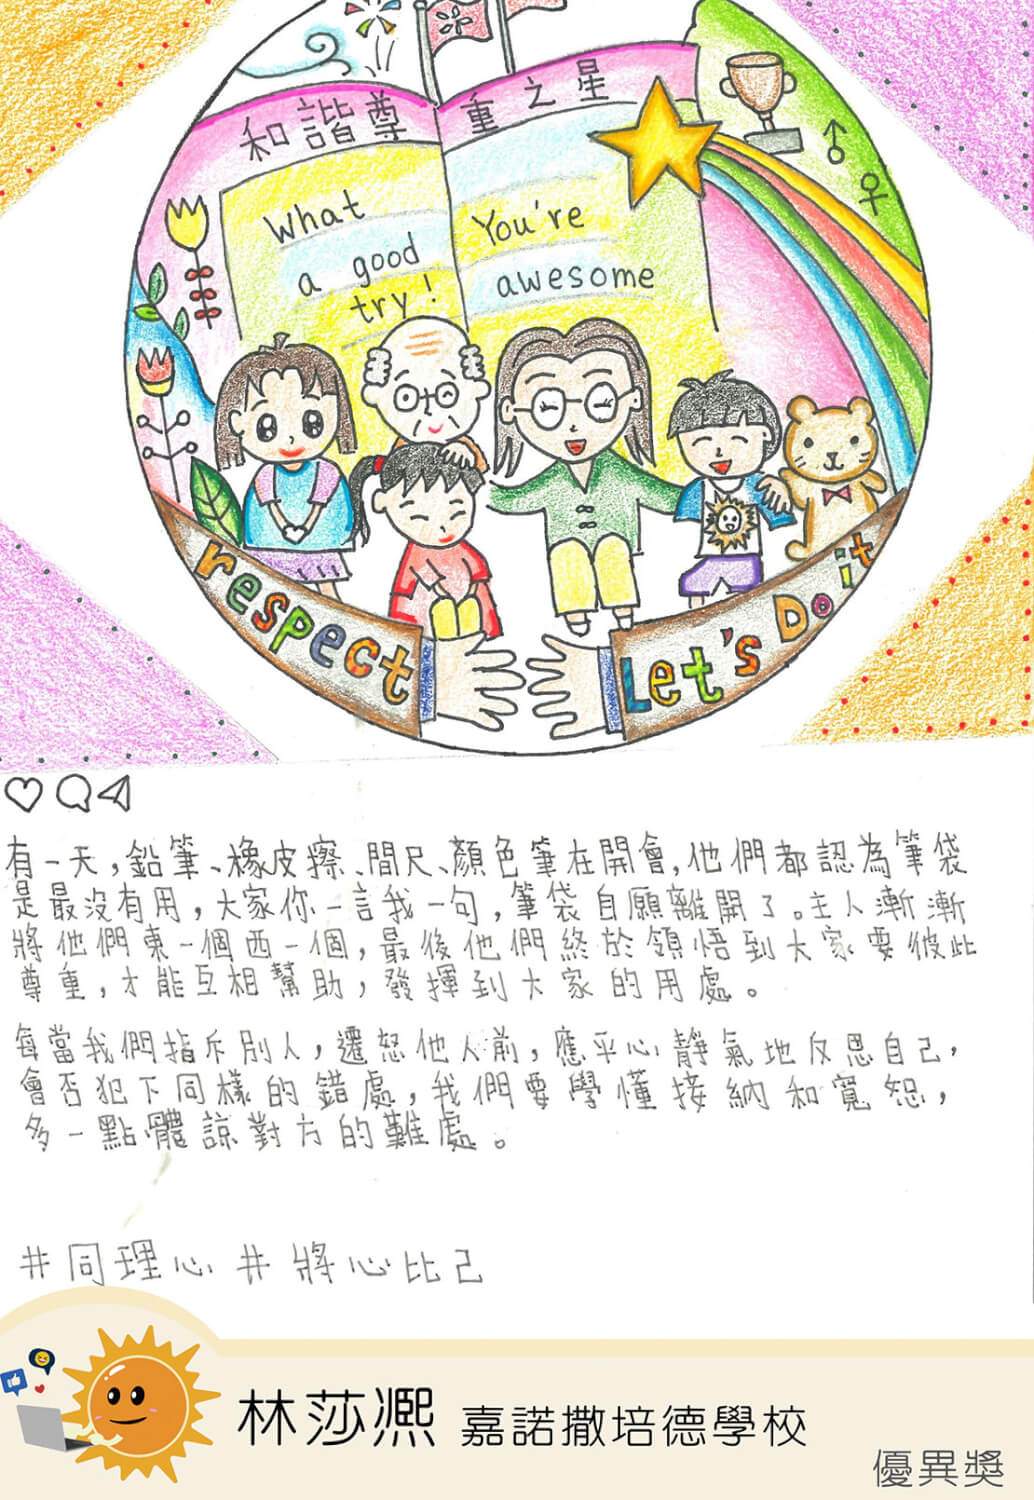 和諧尊重之星
What
a good
try!
You're
awesome
respect
Let's Do it
有一天,鉛筆、橡皮擦、間尺、顏色筆在開會,他們都認為筆袋
是最沒有用,大家你一言我一句,筆袋自願離開了。主人漸漸
將他們東一個西一個,最後他們終於領悟到大家要彼此
尊重,才能互相幫助,發揮到大家的用處。
每當我們指斥別人,遷怒他人前,應平心靜氣地反思自己,
會否犯下同樣的錯處,我們要學懂接納和寬恕,
多一點體諒對方的難處。
#同理心 #將心比己
林莎瀠 嘉諾撒培德學校
優異獎